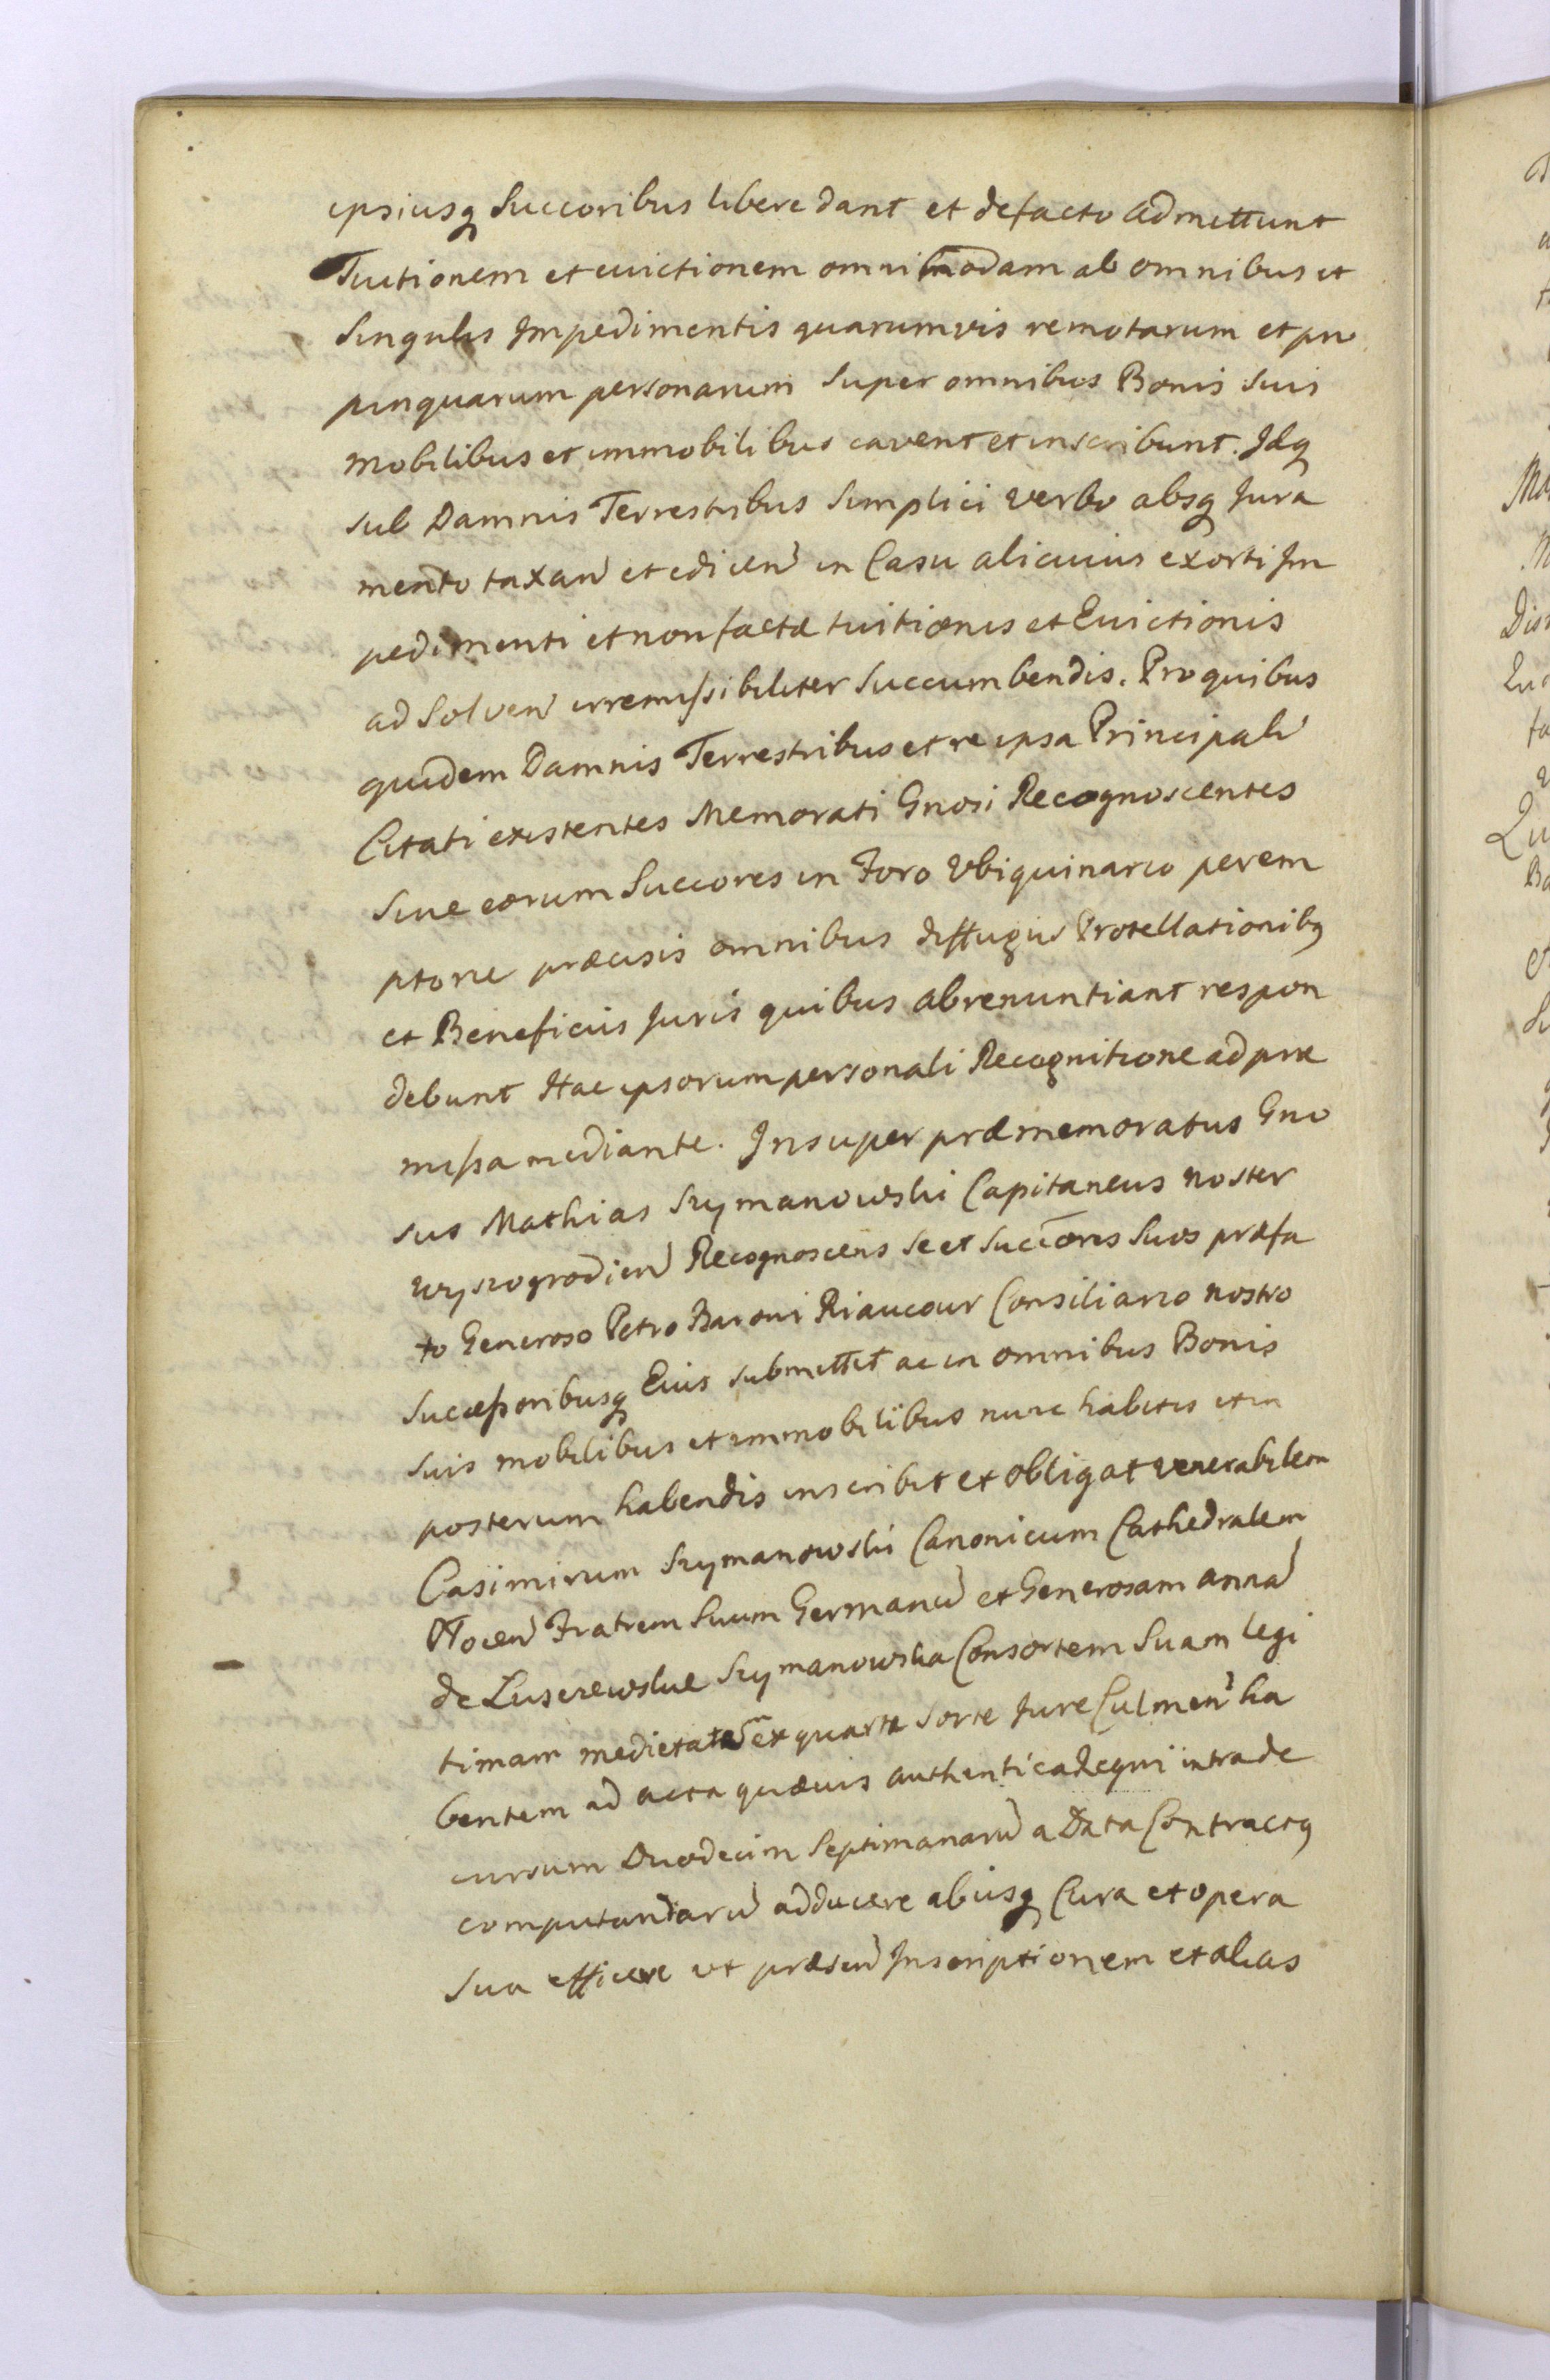 ipsiusq Succoribus libere dant et defacto admittunt
Tuitionem et evictionem omnimodam ab omnibus et
Singulis Impedimentis quarumvis remotarum et pro
pinquarum personarum Super omnibus Bonis Suis
mobilibus et immobilibus cavent et inscribunt. Idq
sub Damnis Terrestribus Simplici verbo absq Jura
mento taxan et edicen in Casu alicuius exorti Im
pedimenti et non factæ tuitionis et Evictionis
ad Solven irremissibiliter Succumbendis. Pro quibus
quidem Damnis Terrestribus et re ipsa Principali
Citati existentes Memorati Gnosi Recognoscentes
Sive eorum Succores in Foro Ubiquinario perem
ptorie præcisis omnibus diffugiis Protellationibq
et Beneficiis Juris quibus abrenuntiant respon
debunt Hac ipsorum personali Recognitione ad præ
missa mediante. Insuper præmemoratus Gno
sus Mathias Szymanowski Capitaneus noster
Wyszogrodien Recognoscens Se et Succores Suos præfa
to Generoso Petro Baroni Riaucour Consiliario nostro
Successoribusq Eius submittit ac in omnibus Bonis
Suis mobilibus et immobilibus nunc habitis et in
posterum habendis inscribit et obligat venerabilem
Casimirum Szymanowski Canonicum Cathedralem
Plocen Fratrem Suum Germanu et Generosam Anna
de Luszczewskie Szymanowska Consortem Suam legi
timam medietatem ex quarta sorte Jure Culmen ha
bentem ad acta quævis authentica Regni intra de
cursum Duodecim Septimanaru a Data Contractq
computandaru adducere abiisq Cura et opera
Sua efficere ut præsen Inscriptionem et alias